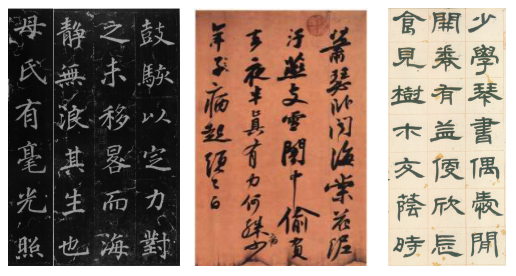 鼓駭以定力對
之未移晷而海
靜無浪其生也
母氏有毫光照
蕭瑟卧聞海棠花泥
汙燕支雪闇中偷負
去夜半真有力何殊少
年子病起頭已白
少學琴書偶愛閒
開卷有益便欣辰
食見樹木交蔭時